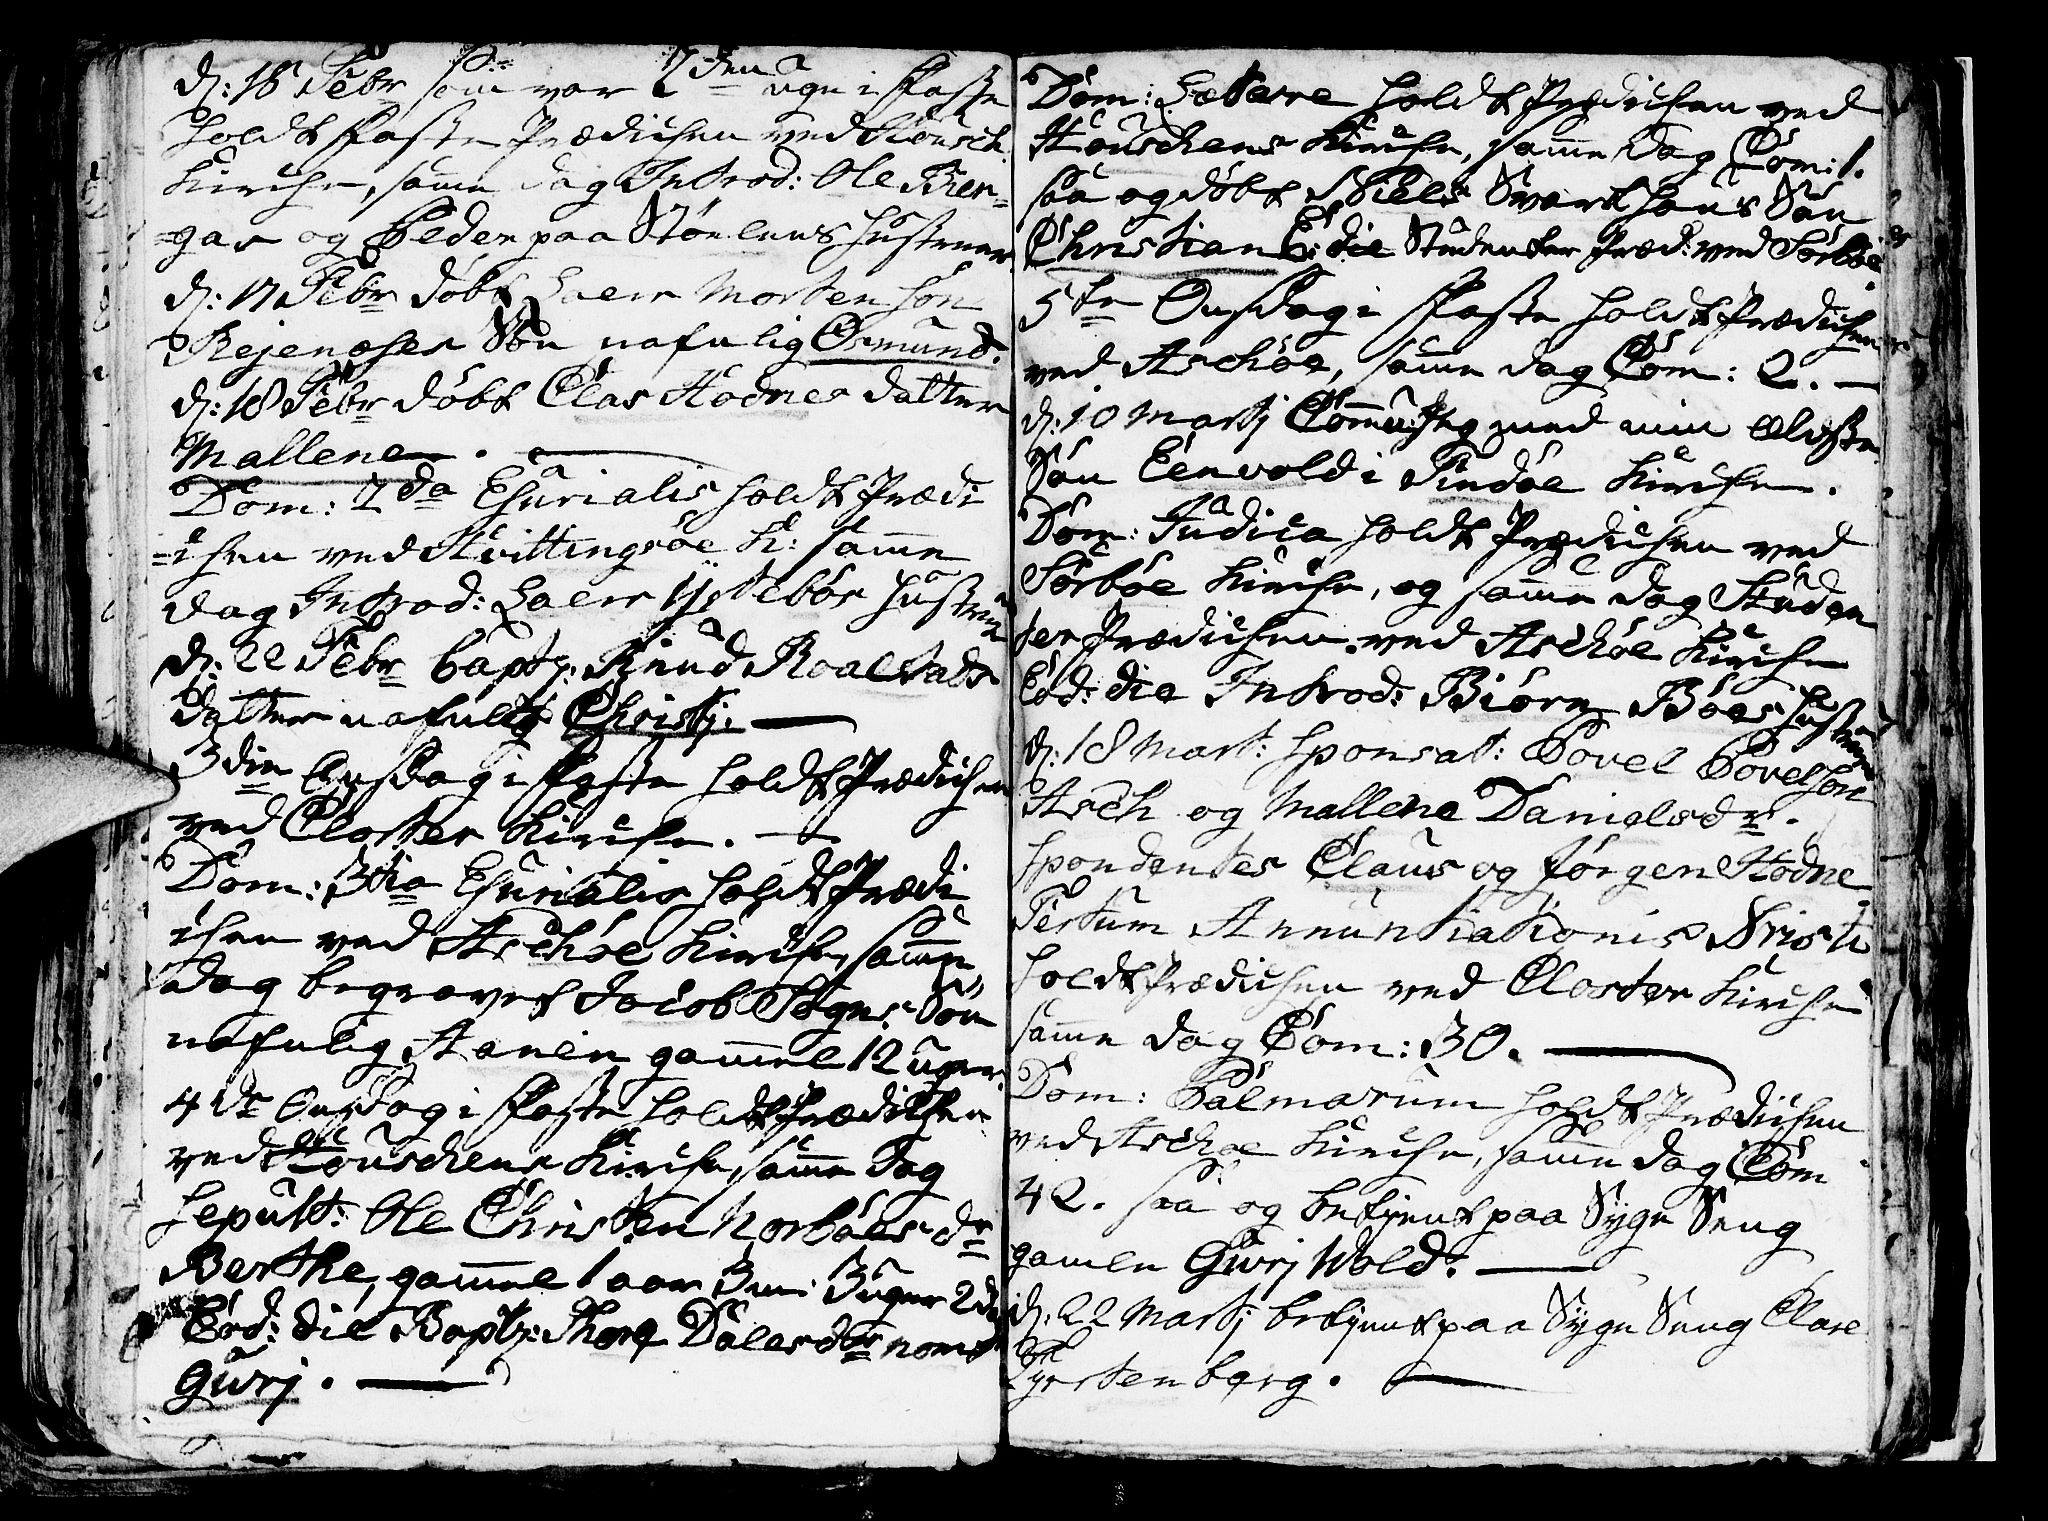 d: 18 Febr som var 2den uge i Faste
holdt Faste Prædichen ved Housch
Kirche, same dag Introd: Ole Bier-
-gar og Peder paa Stoelens hustruer.
d: 17 Febr døbt Laers Mortenson
Rejenæses Søn nafnlig Osmund.
d: 18 Febr døbt Clas Hodnes datter
Mallene.
Dom: 2da Esurialis holdt Prædi
-chen ved Hvittingsøe K: same
dag Introd: Laers Ystebøs hustrue
d: 22 Febr bapt: Knud Roalstads
datter nafnlig Christj.
3die Onsdag i Faste holdt Prædichen
ved Closter Kirche.
Dom: 3tia Esurialis holdt Prædi
chen ved Aschøe Kirche, same
dag begravet Jacob Søgnes Søn
nafnlig Aanen gamel 12 uger.
4de Onsdag i Faste holdt Prædichen
ved Houschens Kirche, same dag
sepult: Ole Christen Norbøes dr
Berthe, gamel 1 aar 3 m: 3 uger 2 da
Eod: die Bapt: Thore Dales dr nom
Gurj.
Dom: Lætare holdt Prædichen ved
Houschens Kirche, same dag Com: 1.
saa og døbt Niels Svarthous Søn
Christian E: die Studenter Præd: ved Sørbøe
5te Onsdag i Faste holdt Prædichen
ved Aschøe, same dag Com: 2.
d: 10 Martj Comu: Jeg med min Ældste
Søn Eenvold i Findøe Kirche.
Dom: Judica holdt Prædichen ved
Sørbøe Kirche, og same dag Studen
ter Prædichen ved Aschøe Kirche
Eod: die Introd: Biørn Bøes hustrue
d: 18 Mart: sponsat: Povel Povelson
Asch og Mallene Danielsdr.
spondentes Claus og Jørgen Hodne
Festum Annuntiationis Christi
holdt Prædichen ved Closter Kirche
same dag Com: 30.
Dom: Palmarum holdt Prædichen
ved Aschøe Kirche, same dag Com
42. saa og betjent paa Syge Seng
gamle Gurj Wold.
d: 22 Martj betjent paa Syge Seng Clare
Fyrstenberg.